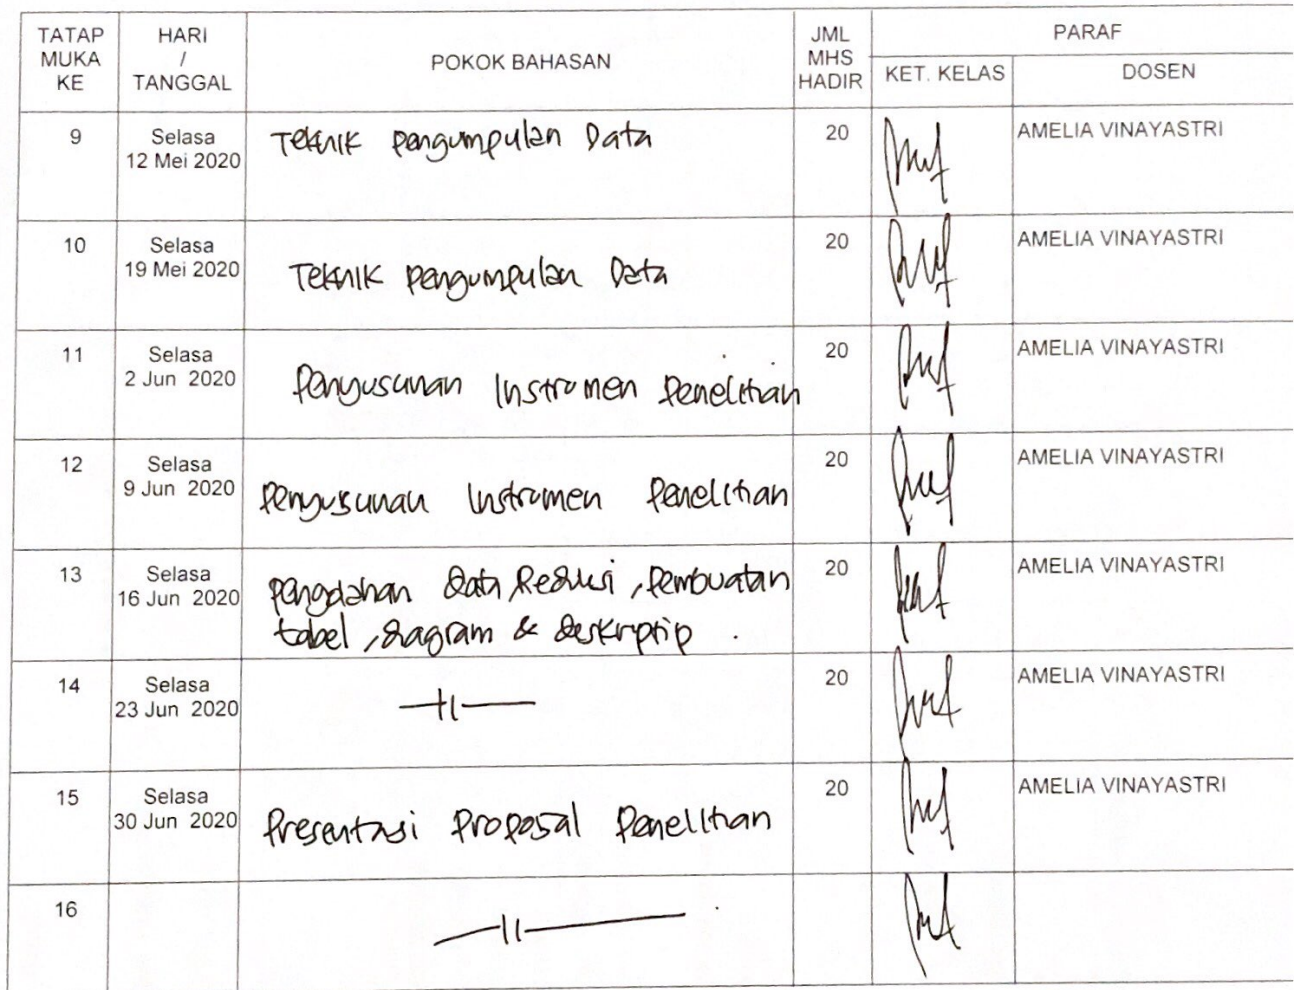 TATAP MUKA KE
HARI / TANGGAL
POKOK BAHASAN
JML MHS HADIR
PARAF
KET. KELAS
DOSEN
9
Selasa
12 Mei 2020
Teknik Pengumpulan Data
20
AMELIA VINAYASTRI
10
Selasa
19 Mei 2020
Teknik Pengumpulan Data
20
AMELIA VINAYASTRI
11
Selasa
2 Jun 2020
Penyusunan Instrumen Penelitian
20
AMELIA VINAYASTRI
12
Selasa
9 Jun 2020
Penyusunan Instrumen Penelitian
20
AMELIA VINAYASTRI
13
Selasa
16 Jun 2020
Pengolahan data Reduksi, Pembuatan
tabel, diagram & deskriptip.
20
AMELIA VINAYASTRI
14
Selasa
23 Jun 2020
—||—
20
AMELIA VINAYASTRI
15
Selasa
30 Jun 2020
Presentasi Proposal Penelitian
20
AMELIA VINAYASTRI
16
—||—